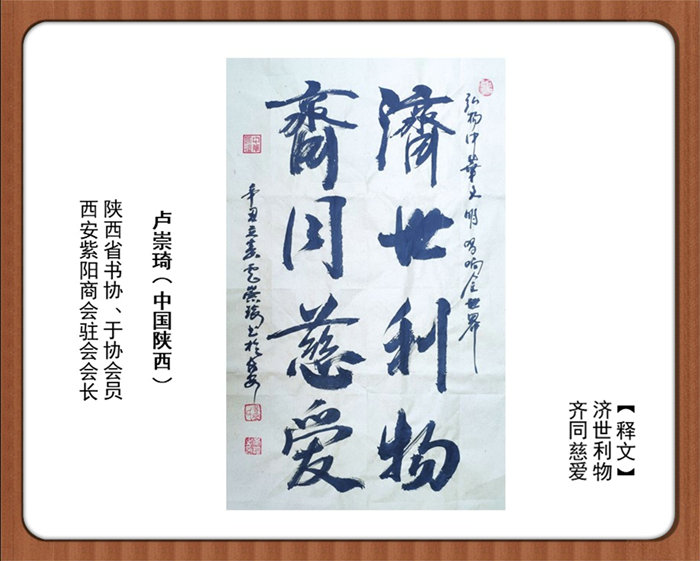 【释文】
济世利物
齐同慈爱
弘扬中華文明唱响全世界
濟世利物
齊同慈爱
辛丑立春 崇琦书於
卢崇琦（中国陕西）
陕西省书协、于协会员
西安紫阳商会驻会会长